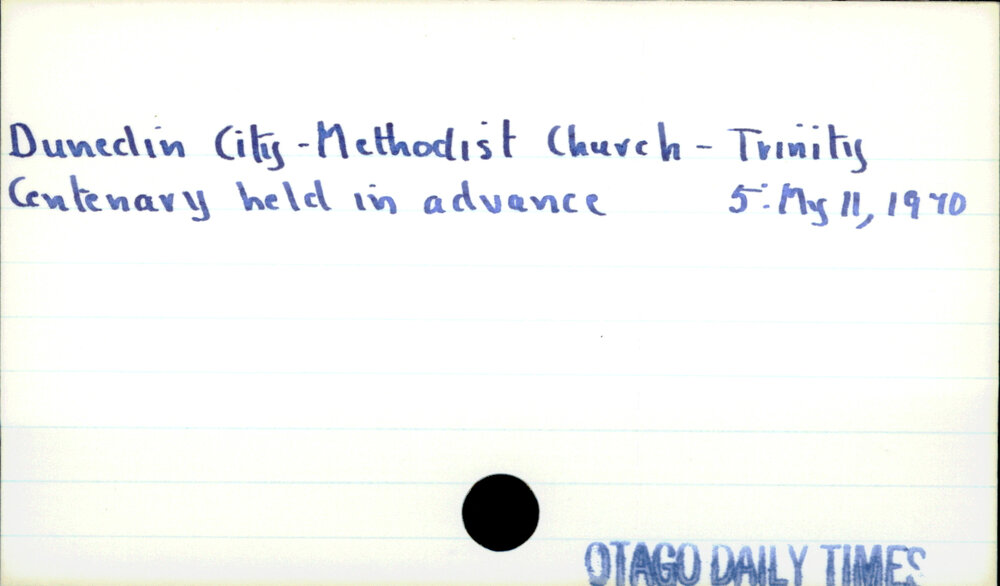 Dunedin City - Methodist Church - Trinity
Centenary held in advance 5: My 11, 1970
OTAGO DAILY TIMES